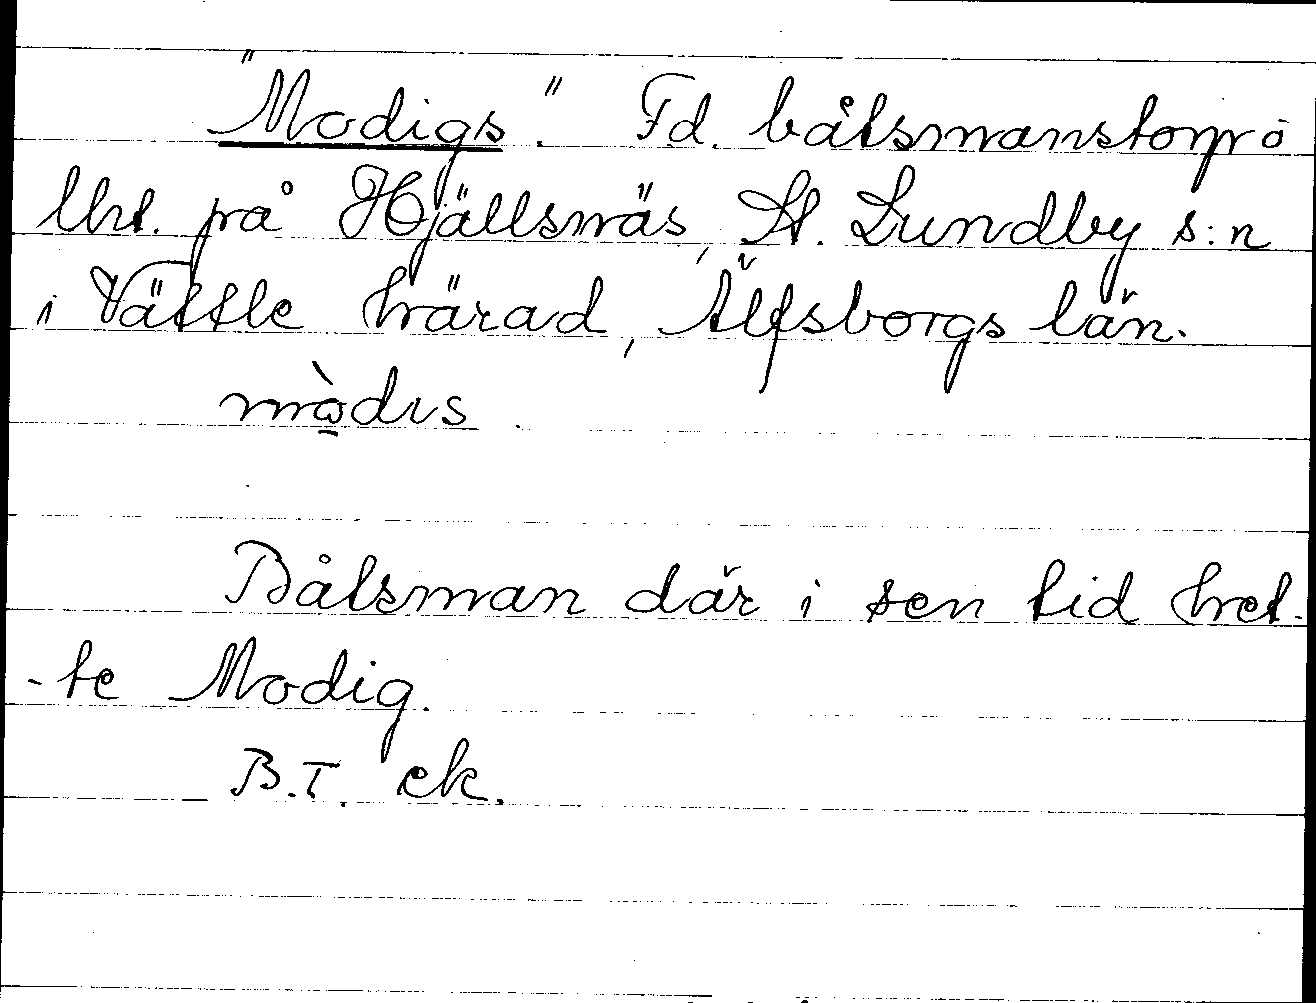 "Modigs". Fd. båtsmanstorp o
lht. på Hjällsnäs, St. Lundby s:n
i Vättle härad, Älfsborgs län.
mȯ̱dis
Båtsman där i sen tid het-
-te Modig.
B.T. ek.